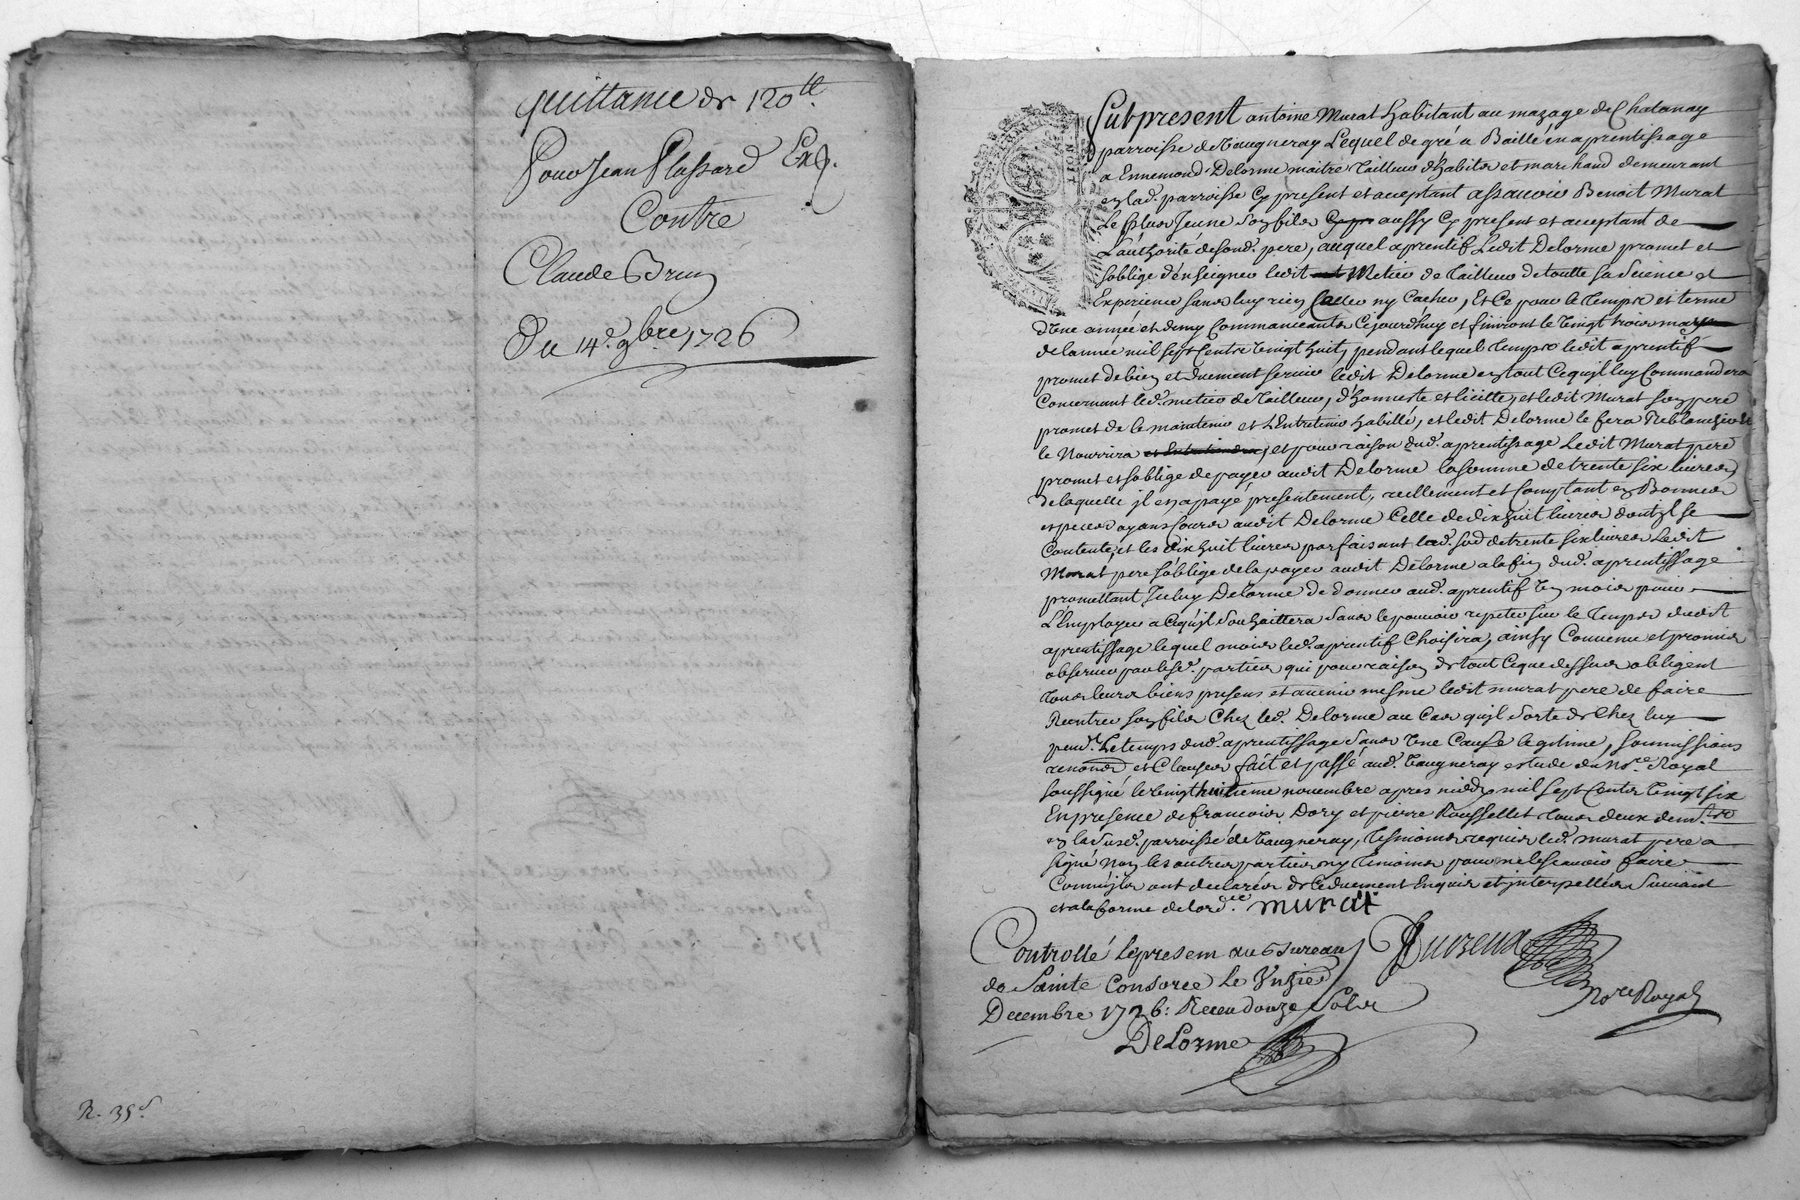 quittance de 120ᵗᵗ.
Pour Jean Plassard Exp.
Contre
Claude Brun
Du 14ᵉ. 9bre 1726
R. 35ˢ.
Fut present antoine Murat habitant au mazage de Chatanay
parroisse de Vaugneray Lequel de gré a Baillé en aprentissage
a Ennemond Delorme maitre Tailleur d'habits et marchand demeurant
en lad. parroisse Cy present et acceptant assavoir Benoit Murat
Le plus Jeune Son fils aussy Cy present et acceptant de
L'authorité de sond. pere, auquel aprentif Ledit Delorme promet et
s'oblige d'enseigner ledit Metier de Tailleur de toutte sa Science et
Experience sans luy rien Celler ny Cacher, Et Ce pour le Temps et terme
d'Une année et demy Commanceants Cejourd'huy et finiront le Vingt trois may
de lannée mil sept Cents Vingt huit, pendant lequel Temps ledit aprentif
promet de bien et duement servir ledit Delorme en tout Cequ'il luy Commandera
Concernant led. metier de Tailleur, d'honneste et licitte, et ledit Murat son pere
promet de le maintenir et L'Entretenir habillé, et ledit Delorme le fera Reblanchir et
le Nourrira et pour raison dud. aprentissage Ledit Murat pere
promet et s'oblige de payer audit Delorme la somme de trente six livres
de laquelle il en a payé presentement, reellement et Comptant en Bonnes
especes ayans cours audit Delorme Celle de dix huit livres dont il se
Contente, et les dix huit livres parfaisant lad. so. de trente six livres Ledit
Murat pere s'oblige de la payer audit Delorme a la fin dud. aprentissage
promettant Iceluy Delorme de donner aud. aprentif Un mois pour
L'Employer a Cequ'il Souhaittera Sans le pouvoir repeter sur le Temps dudit
aprentissage lequel mois led. aprentif Choisira, ainsy Convenu et promis
observer par lesd. parties qui pour raison de tout Ceque dessus obligent
tous leurs biens presens et avenir mesme ledit murat pere de faire
Rentrer son fils Chez led. Delorme au Cas qu'il Sorte de Chez luy
pend.ᵗ Le temps dud. aprentissage Sans Une Cause legitime, Soumissions
renonᵒⁿˢ et Clauses fait et passé aud. Vaugneray estude du Noʳᵉ Royal
soussigné le Vingt huitieme novembre apres midy mil sept Cents Vingt six
En presence de francois Dory et pierre Rousselet tous deux dem.ᵗˢ
en la susd. parroisse de Vaugneray, tesmoins requis led. murat pere a
signé Non les autres parties ny tesmoins pour ne le scavoir faire
Comm'ils ont declarés de Ce duement Enquis et interpellés Suivant
et a la forme de lord.ᶜᵉ murat
Controllé le present au Bureau
de Sainte Consorce Le Unzie
Decembre 1726: Receu douze Sols
DeLorme
Noʳᵉ Royal